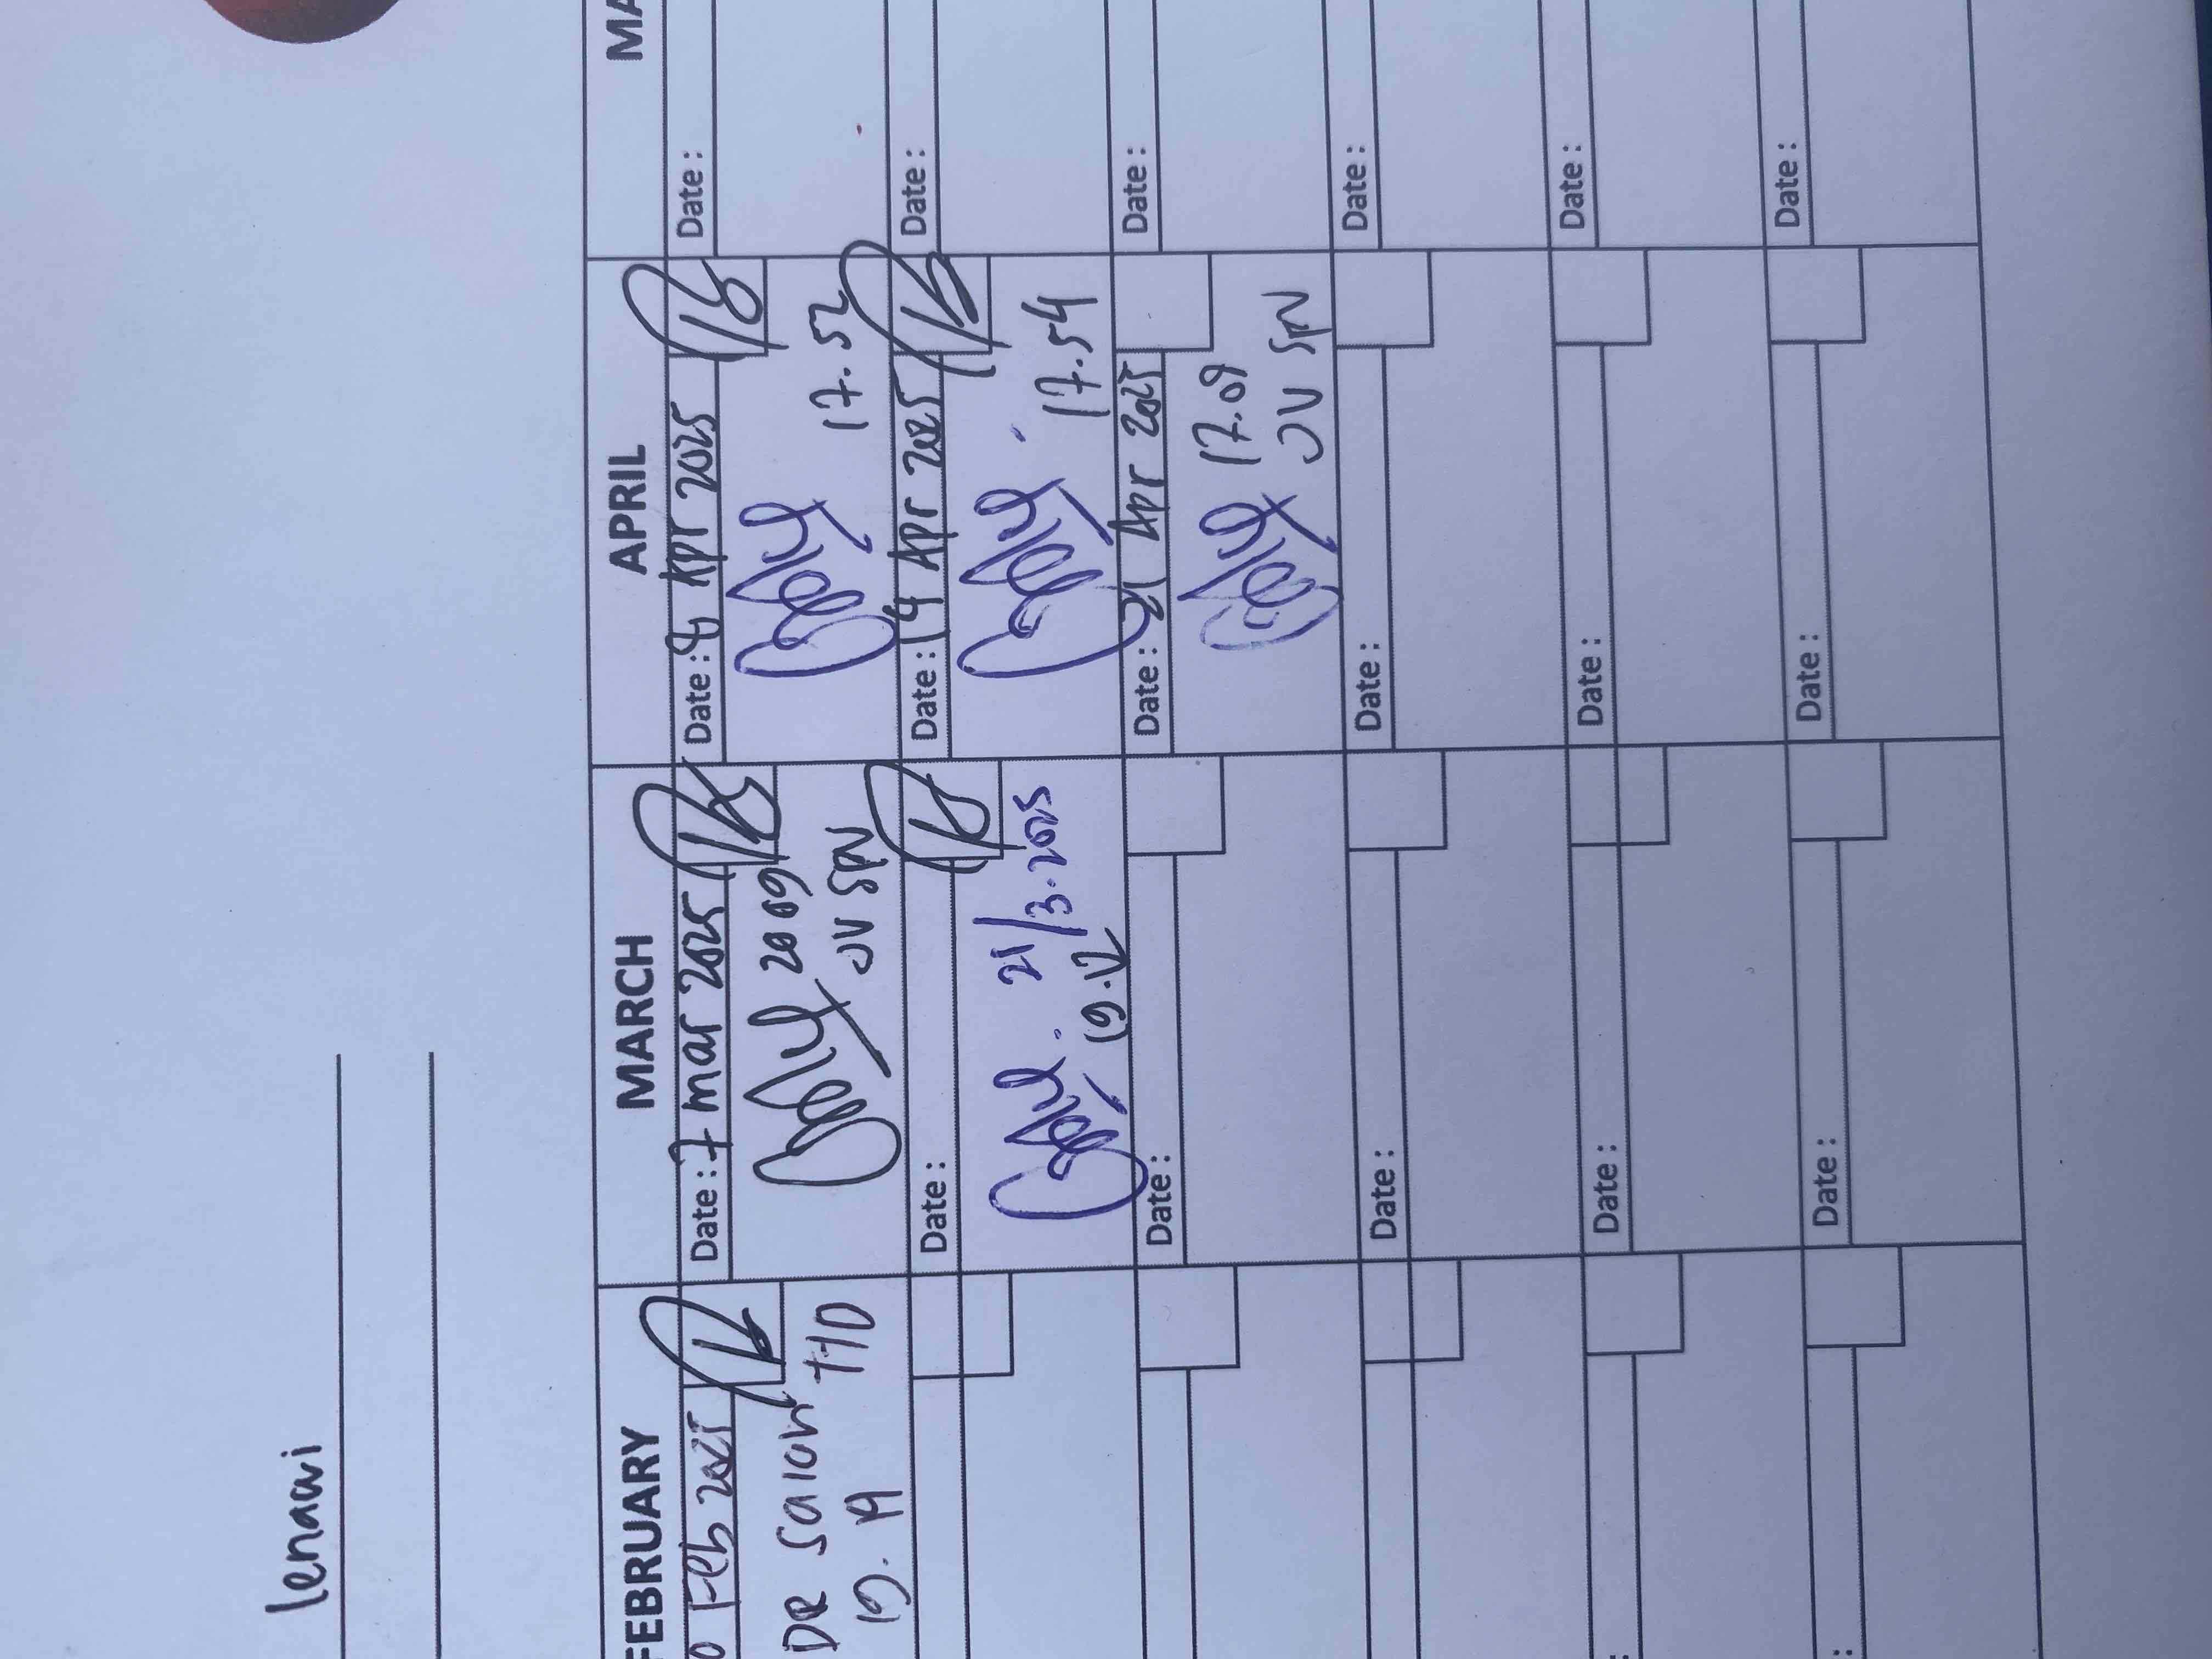 lenawi
FEBRUARY
MARCH
APRIL
MA
0 Feb 2025
Date : 7 mar 2025
Date : 8 Apr 2025
Date :
DR
TTD
19.19
2009
UV SPV
17.52
Date :
Date : 14 Apr 2025
Date :
21/3-2025
19.12
17.54
Date :
Date : 21 Apr 2025
Date :
17.09
UV SPV
Date :
Date :
Date :
Date :
Date :
Date :
Date :
Date :
Date :